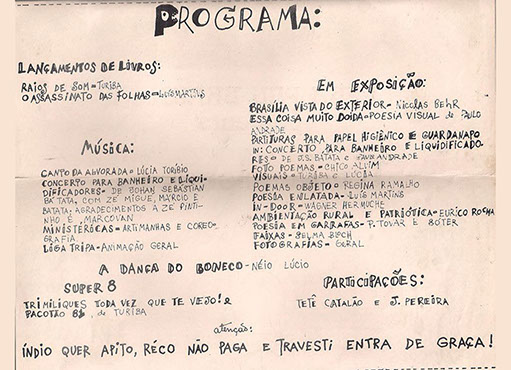 PROGRAMA:
LANÇAMENTOS DE LIVROS:
RAIOS DE SOM - TURIBA
O ASSASSINATO DAS FOLHAS - LUIS MARTINS
MÚSICA:
CANTO DA ALVORADA - LÚCIA TORÍBIO
CONCERTO PARA BANHEIRO E LIQUI-
DIFICADORES - DE JOHAN SEBASTIAN
BATATA, COM ZÉ MIGUE, MÁRCIO E
BATATA; AGRADECIMENTOS A ZÉ PINTI-
NHO E MARCOVAN
MINISTÉRICAS - ARTIMANHAS E COREO-
GRAFIA.
LIGA TRIPA - ANIMAÇÃO GERAL
EM EXPOSIÇÃO:
BRASÍLIA VISTA DO EXTERIOR - NICOLAS BEHR
ESSA COISA MUITO DOIDA - POESIA VISUAL DE PAULO
ANDRADE
PARTITURAS PARA PAPEL HIGIÊNICO E GUARDANAPO
IN: CONCERTO PARA BANHEIRO E LIQUIDIFICADO-
RES - DE J.S. BATATA E PAULO ANDRADE
FOTO POEMAS - CHICO ALVIM
VISUAIS - TURIBA E LÚCIA
POEMAS OBJETO - REGINA RAMALHO
POESIA ENLATADA - LUIS MARTINS
IN-DOOR - WAGNER HERMUCHE
AMBIENTAÇÃO RURAL E PATRIÓTICA - EURICO ROCHA
POESIA EM GARRAFAS - P. TOVAR E
FAIXAS - BLOCH
FOTOGRAFIAS - GERAL
A DANÇA DO BONECO - NÉIO LÚCIO
SUPER 8
TRIMILIQUES TODA VEZ QUE TE VEJO! E
PACOTÃO 81, DE TURIBA
PARTICIPAÇÕES:
TETÊ CATALÃO E J. PEREIRA
atenção:
ÍNDIO QUER APITO, RÉCO NÃO PAGA E TRAVESTI ENTRA DE GRAÇA!